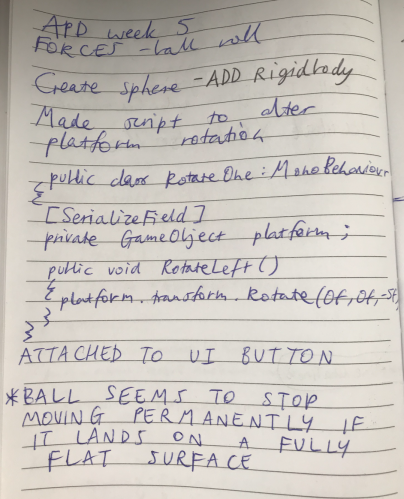 APD week 5
FORCES - ball roll
Create sphere - ADD Rigidbody
Made script to alter
platform rotation
public class RotateOne : MonoBehaviour
{
[SerializeField]
private GameObject platform;
public void RotateLeft()
{ platform.transform.Rotate(0f, 0f, -5f
}
}
ATTACHED TO UI BUTTON
*BALL SEEMS TO STOP
MOVING PERMANENTLY IF
IT LANDS ON A FULLY
FLAT SURFACE